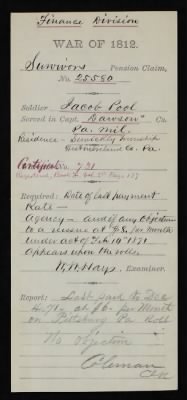 Finance Division
WAR OF 1812.
Survivors Pension Claim,
No. 25580
Soldier Jacob Pool
Served in Capt. Dawson Co.
Pa. Mil.
Residence - Township
Westmoreland Co. Pa.
Certificate No. 721
Required: Date of last payment
Rate -
Agency - and if any objection
to a reissue at $8. per Month
under act of Feb 14" 1871
Appears upon the rolls.
Hays, Examiner.
Report: Last paid to Dec
4. 71, at $8. per Month
on Pittsburg Pa Roll
No objection
Coleman
Clk